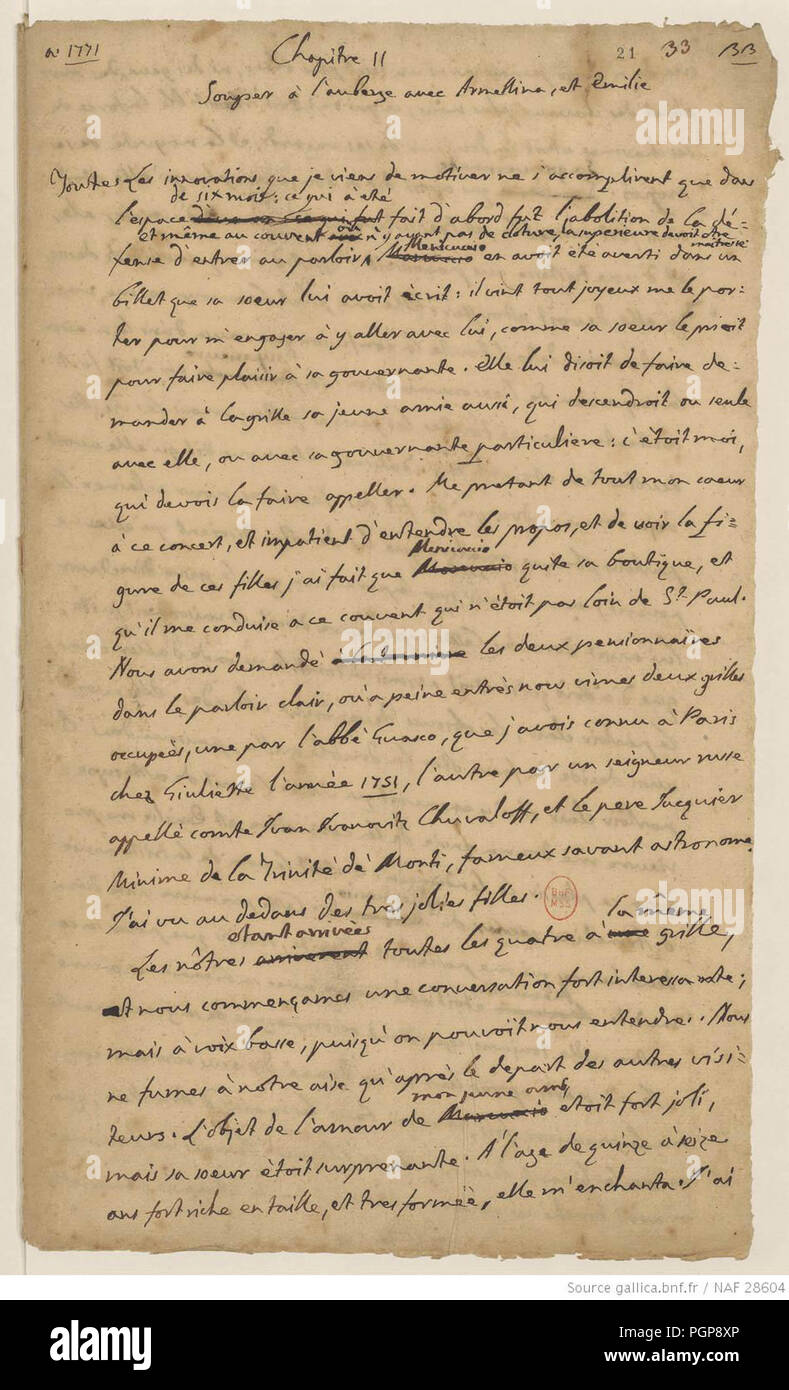 a: 1771
Chapitre II
21 33 BB
Souper à l'auberge avec Armelline, et Emilie
Toutes Les innovations que je viens de motiver ne s'accomplirent que dans
de six mois: ce qui à eté
l'espace fait d'abord fut l'abolition de la dé=
et même au couvent où n'y ayant pas de cloture, la superieure devoit etre
maitresse
fense d'entrer au parloir, Menicuccio en avoit été averti dans un
billet que sa soeur lui avoit écrit: il vint tout joyeux me le por=
ter pour m'engager à y aller avec lui, comme sa soeur le prioit
pour faire plaisir à sa gouvernante. Elle lui disoit de faire de=
mander à la grille sa jeune amie aussi, qui descendroit ou seule
avec elle, ou avec sa gouvernante particuliere: c'étoit moi,
qui devois la faire appeller. Me pretant de tout mon coeur
à ce concert, et impatient d'entendre les propos, et de voir la fi=
Menicucio
gure de ces filles j'ai fait que quite sa boutique, et
qu'il me conduise a ce couvent qui n'étoit pas loin de St. Paul.
Nous avons demandé les deux pensionnaires
dans le parloir clair, où à peine entrès nous vimes deux grilles
occupeés, une par l'abbé Guasco, que j'avois connu à Paris
chez Giuliette l'année 1751, l'autre par un seigneur russe
appellé comte Ivan Ivanovitz Chuvaloff, et le pere Jacquier
Minime de la Trinité dé Monti, fameux savant astronome.
J'ai vu au dedans des tres jolies filles.
etant arriveès
la même
Les nôtres toutes les quatre à grille,
et nous commençames une conversation fort interessante;
mais à voix basse, puisqu'on pouvoït nous entendre. Nous
ne fumes à notre aise qu'après le depart des autres visi=
mon jeune ami
teurs. L'objet de l'amour de etoit fort joli,
mais sa soeur étoit surprenante. A l'age de quinze à seize
ans fort riche en taille, et tres formeë, elle m'enchanta. J'ai
Source gallica.bnf.fr / NAF 28604
alamy
www.alamy.com
PGP8XP